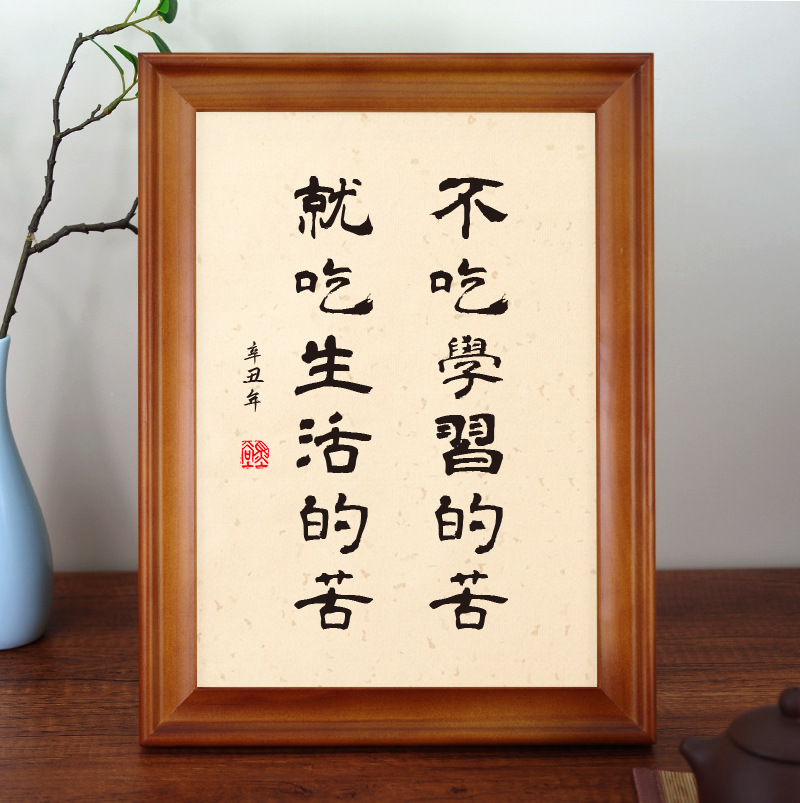 不吃學習的苦
就吃生活的苦
辛丑年